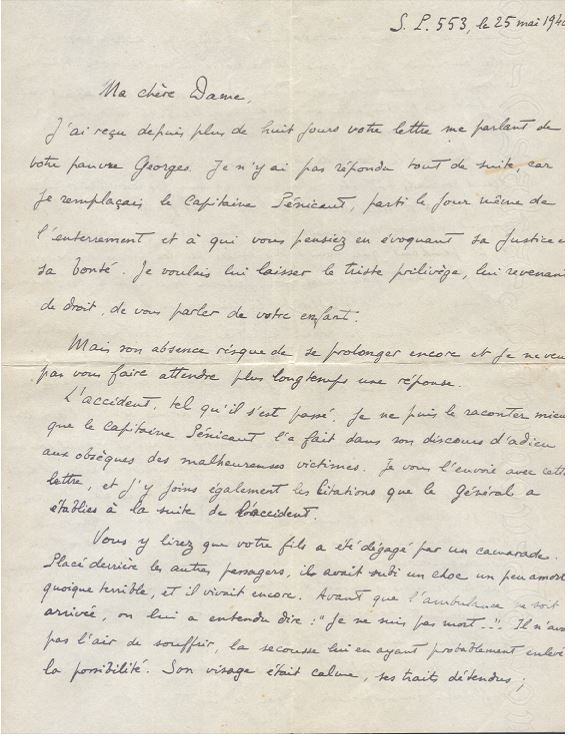 S. P. 553, le 25 mai 1940
Ma chère Dame,
J'ai reçu depuis plus de huit jours votre lettre me parlant de
votre pauvre Georges. Je n'y ai pas répondu tout de suite, car
je remplaçais le Capitaine Pénicaut, parti le jour même de
l'enterrement et à qui vous pensiez en évoquant sa justice e
sa bonté. Je voulais lui laisser le triste prilivège, lui revenan
de droit, de vous parler de votre enfant.
Mais son absence risque de se prolonger encore et je ne veu
pas vous faire attendre plus longtemps une réponse.
L'accident, tel qu'il s'est passé, je ne puis le raconter mieu
que le Capitaine Pénicaut l'a fait dans son discours d'adieu
aux obsèques des malheureuses victimes. Je vous l'envoie avec cett
lettre, et j'y joins également les Citations que le Général a
établies à la suite de l'accident.
Vous y lirez que votre fils a été dégagé par un camarade.
Placé derrière les autres passagers, il avait subi un choc un peu amort
quoique terrible, et il vivait encore. Avant que l'ambulance ne soit
arrivée, on lui a entendu dire : "Je ne suis pas mort..". Il n'ava
pas l'air de souffrir, la secousse lui en ayant probablement enlevé
la possibilité. Son visage était calme, ses traits détendus ;